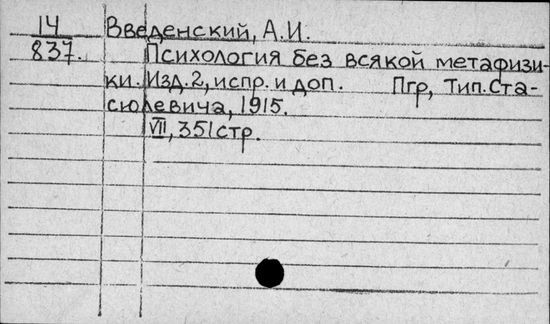 14 Введенский, А.И.
837. Психология без всякой метафизи-
ки. Изд.2, испр. и доп. Пгр, Тип. Ста-
сюлевича, 1915.
VII, 351 стр.